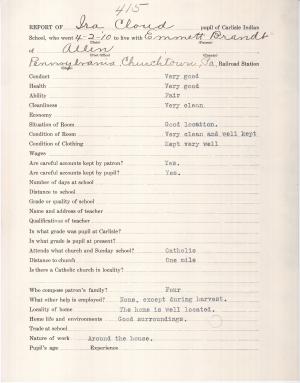 415
REPORT OF Ira Cloud pupil of Carlisle Indian
School, who went 4-2-10 to live with Emmett Brandt
(Patron)
of Allen
(Post Office) (County)
Pennsylvania, Churchtown, Pa, Railroad Station
(State)
Conduct Very good
Health Very good
Ability Fair
Cleanliness Very clean
Economy
Situation of Room Good location.
Condition of Room Very clean and well kept
Condition of Clothing Kept very well
Wages
Are careful accounts kept by patron? Yes.
Are careful accounts kept by pupil? Yes.
Number of days at school
Distance to school
Grade or quality of school
Name and address of teacher
Qualifications of teacher
In what grade was pupil at Carlisle?
In what grade is pupil at present?
Attends what church and Sunday school? Catholic
Distance to church One mile
Is there a Catholic church in locality?
Who compose patron's family? Four
What other help is employed? None, except during harvest.
Locality of home The home is well located.
Home life and environments Good surroundings.
Trade at school
Nature of work Around the house.
Pupil's age Experience